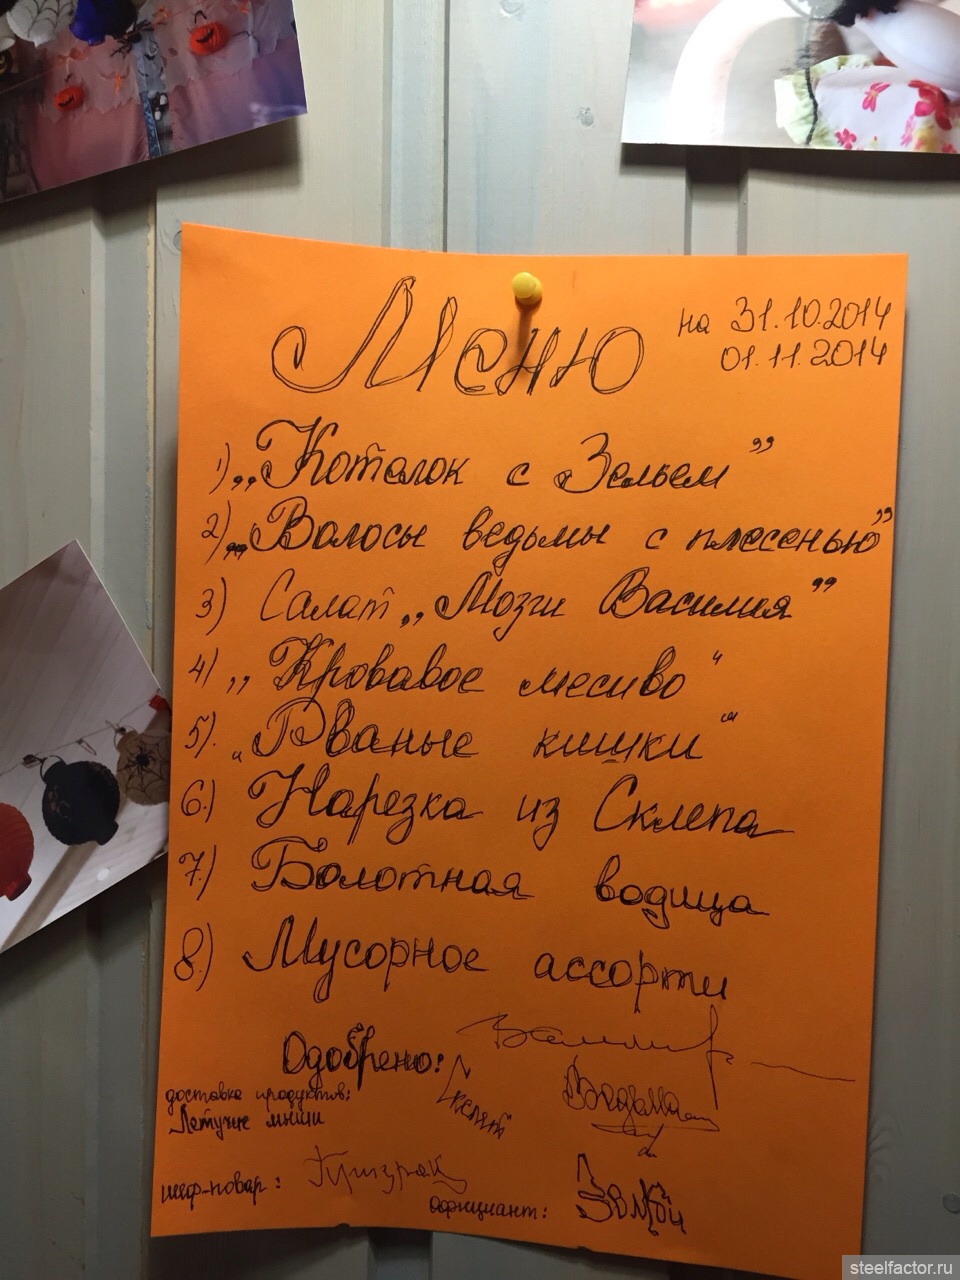 Меню
на 31.10.2014
01.11.2014
1) „Котелок с Зельем”
2) „Волосы ведьмы с плесенью”
3) Салат „Мозги Василия”
4) „Кровавое месиво“
5). „Рваные кишки“
6.) Нарезка из Склепа
7.) Болотная водица
8.) Мусорное ассорти
Одобрено: Вампир
Скелет Ведьма
доставка продуктов:
Летучие мыши
шеф-повар: Призрак
официант: Зомби
steelfactor.ru